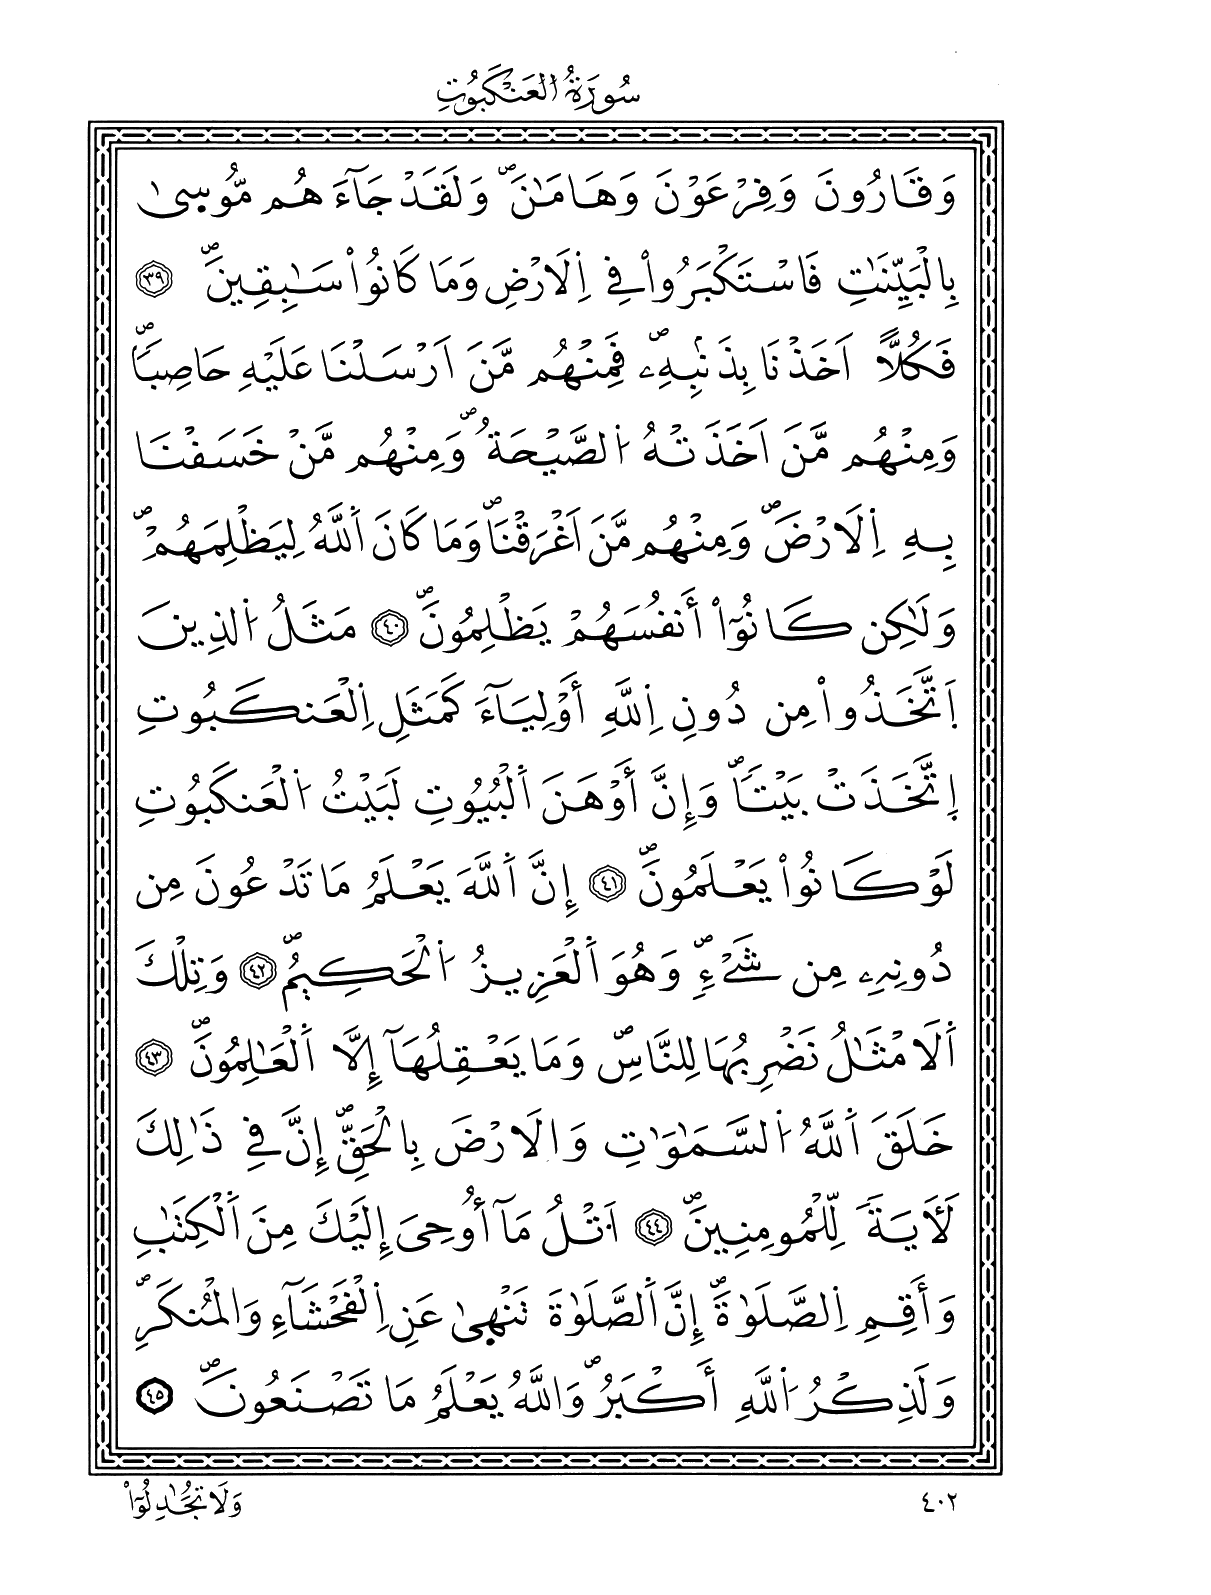 سُورَةُ الْعَنكَبُوتِ
وَقَٰرُونَ وَفِرْعَوْنَ وَهَامَٰنَۖ وَلَقَدْ جَآءَهُم مُّوسىٰ
بِالْبَيِّنَٰتِ فَاسْتَكْبَرُواْ فِے اِ۬لَارْضِ وَمَا كَانُواْ سَٰبِقِينَۖ ٣٩
فَكُلّاً اَخَذْنَا بِذَنۢبِهِۦۖ فَمِنْهُم مَّنَ اَرْسَلْنَا عَلَيْهِ حَاصِباٗۖ
وَمِنْهُم مَّنَ اَخَذَتْهُ اُ۬لصَّيْحَةُۖ وَمِنْهُم مَّنْ خَسَفْنَا
بِهِ اِ۬لَارْضَۖ وَمِنْهُم مَّنَ اَغْرَقْنَاۖ وَمَا كَانَ اَ۬للَّهُ لِيَظْلِمَهُمْۖ
وَلَٰكِن كَانُوٓاْ أَنفُسَهُمْ يَظْلِمُونَۖ ٤٠ مَثَلُ اُ۬لذِينَ
اَ۪تَّخَذُواْ مِن دُونِ اِ۬للَّهِ أَوْلِيَآءَ كَمَثَلِ اِ۬لْعَنكَبُوتِ
اِ۪تَّخَذَتْ بَيْتاٗۖ وَإِنَّ أَوْهَنَ اَ۬لْبُيُوتِ لَبَيْتُ اُ۬لْعَنكَبُوتِ
لَوْ كَانُواْ يَعْلَمُونَۖ ٤١ إِنَّ اَ۬للَّهَ يَعْلَمُ مَا تَدْعُونَ مِن
دُونِهِۦ مِن شَےْءٖۖ وَهُوَ اَ۬لْعَزِيزُ اُ۬لْحَكِيمُۖ ٤٢ وَتِلْكَ
اَ۬لَامْثَٰلُ نَضْرِبُهَا لِلنَّاسِۖ وَمَا يَعْقِلُهَآ إِلَّا اَ۬لْعَٰلِمُونَۖ ٤٣
خَلَقَ اَ۬للَّهُ اُ۬لسَّمَٰوَٰتِ وَالَارْضَ بِالْحَقِّۖ إِنَّ فِے ذَٰلِكَ
لَأٓيَةٗ لِّلْمُومِنِينَۖ ٤٤ اَ۟تْلُ مَآ أُوحِيَ إِلَيْكَ مِنَ اَ۬لْكِتَٰبِ
وَأَقِمِ اِ۬لصَّلَوٰةَۖ إِنَّ اَ۬لصَّلَوٰةَ تَنْهىٰ عَنِ اِ۬لْفَحْشَآءِ وَالْمُنكَرِۖ
وَلَذِكْرُ اُ۬للَّهِ أَكْبَرُۖ وَاللَّهُ يَعْلَمُ مَا تَصْنَعُونَۖ ٤٥
٤٠٢
وَلَا تُجَٰدِلُوٓاْ